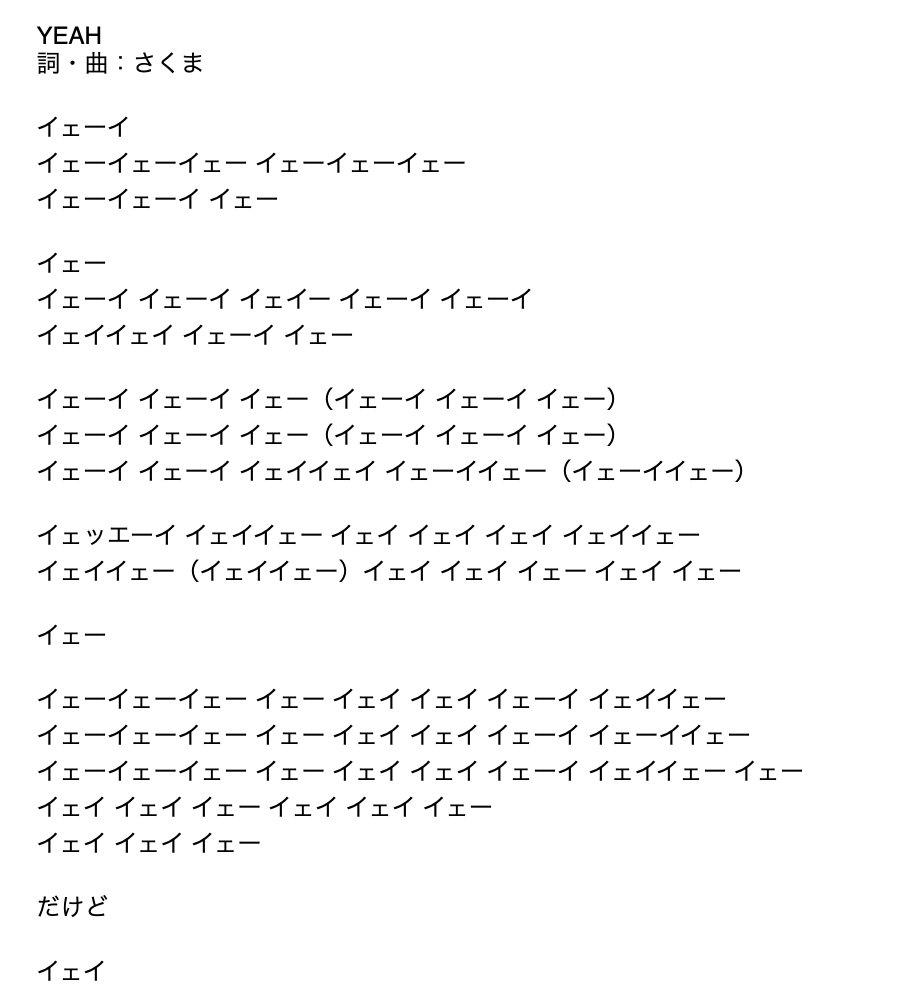 YEAH
詞・曲：さくま
イェーイ
イェーイェーイェー イェーイェーイェー
イェーイェーイ イェー
イェー
イェーイ イェーイ イェイー イェーイ イェーイ
イェイイェイ イェーイ イェー
イェーイ イェーイ イェー（イェーイ イェーイ イェー）
イェーイ イェーイ イェー（イェーイ イェーイ イェー）
イェーイ イェーイ イェイイェイ イェーイイェー（イェーイイェー）
イェッエーイ イェイイェー イェイ イェイ イェイ イェイイェー
イェイイェー（イェイイェー）イェイ イェイ イェー イェイ イェー
イェー
イェーイェーイェー イェー イェイ イェイ イェーイ イェイイェー
イェーイェーイェー イェー イェイ イェイ イェーイ イェーイイェー
イェーイェーイェー イェー イェイ イェイ イェーイ イェイイェー イェー
イェイ イェイ イェー イェイ イェイ イェー
イェイ イェイ イェー
だけど
イェイ